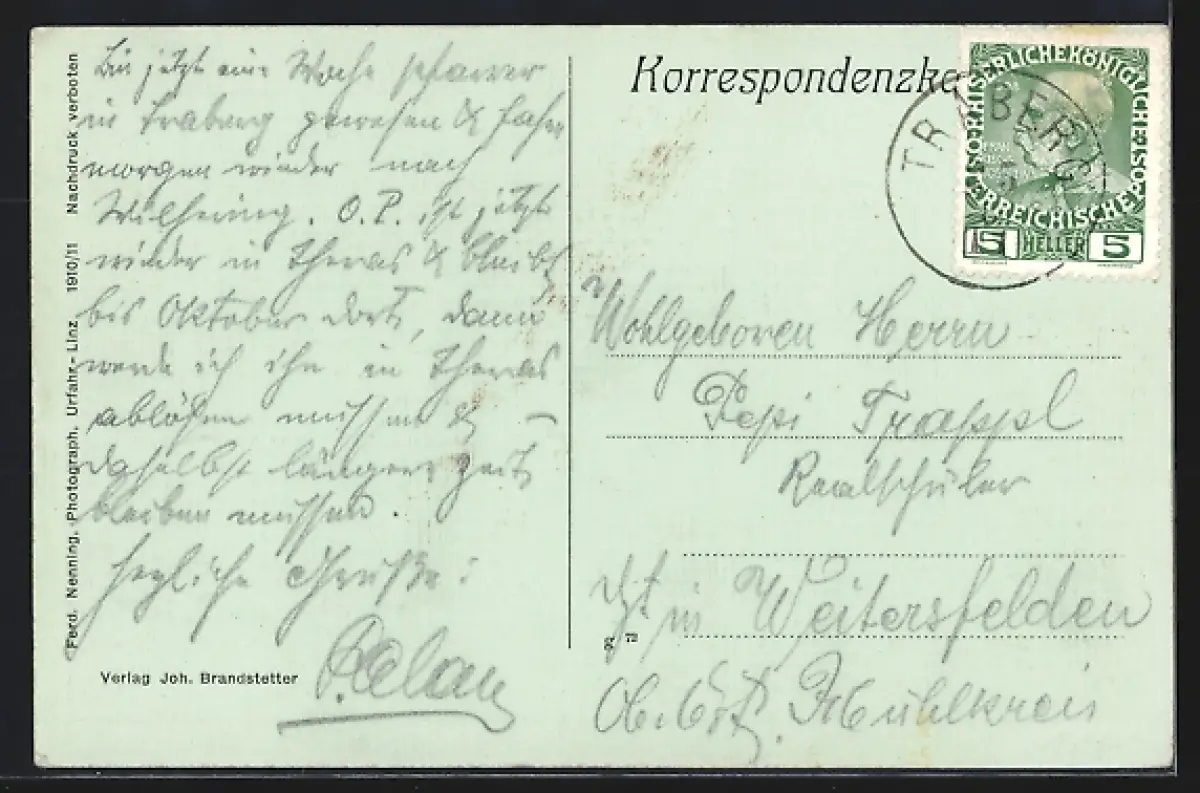 Nachdruck verboten
1910/11
Ferd. Nenning, Photograph, Urfahr-Linz
Bin jetzt eine Woche
in Traberg gewesen & fahre
morgen wieder nach
Wilhering. O. P. ist jetzt
wieder in Theras & bleibt
bis Oktober dort, dann
werde ich ihn in Theras
ablösen müssen & –
daselbst längere Zeit
bleiben müssen.
Herzliche Grüße:
Verlag Joh. Brandstetter
Korrespondenzka
TRABERG
KAISERLICHE KÖNIGLICHE ÖSTERREICHISCHE POST
5 HELLER 5
Wohlgeboren Herrn
Pepi Trappl
Realschüler
in Weitersfelden
Ob. Öst. Mühlkreis